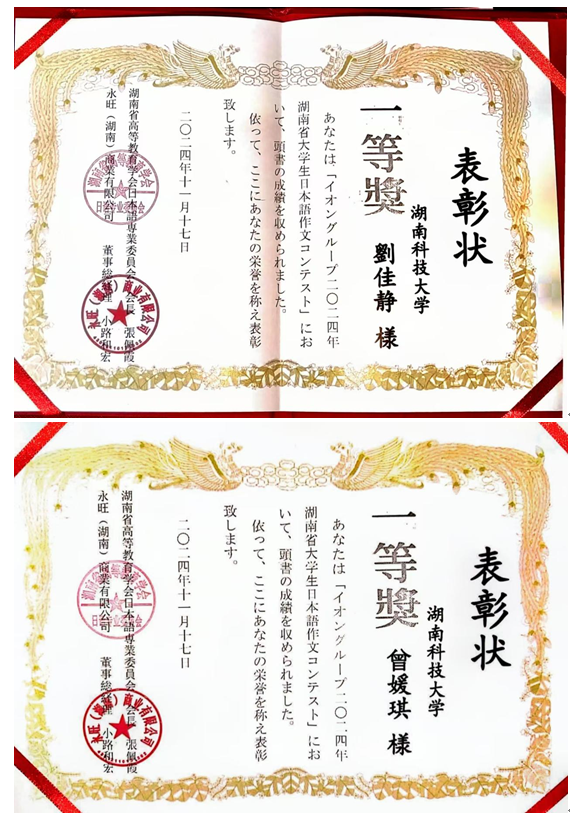 表彰状
一等獎
湖南科技大学
劉佳静 様
あなたは「イオングループ二〇二四年
湖南省大学生日本語作文コンテスト」にお
いて、頭書の成績を収められました。
依って、ここにあなたの栄誉を称え表彰
致します。
二〇二四年十一月十七日
湖南省高等教育学会日本語専業委員会 会長 張佩霞
永旺(湖南)商業有限公司 董事総経理 小路和宏
表彰状
一等獎
湖南科技大学
曾媛琪 様
あなたは「イオングループ二〇二四年
湖南省大学生日本語作文コンテスト」にお
いて、頭書の成績を収められました。
依って、ここにあなたの栄誉を称え表彰
致します。
二〇二四年十一月十七日
湖南省高等教育学会日本語専業委員会 会長 張佩霞
永旺(湖南)商業有限公司 董事総経理 小路和宏